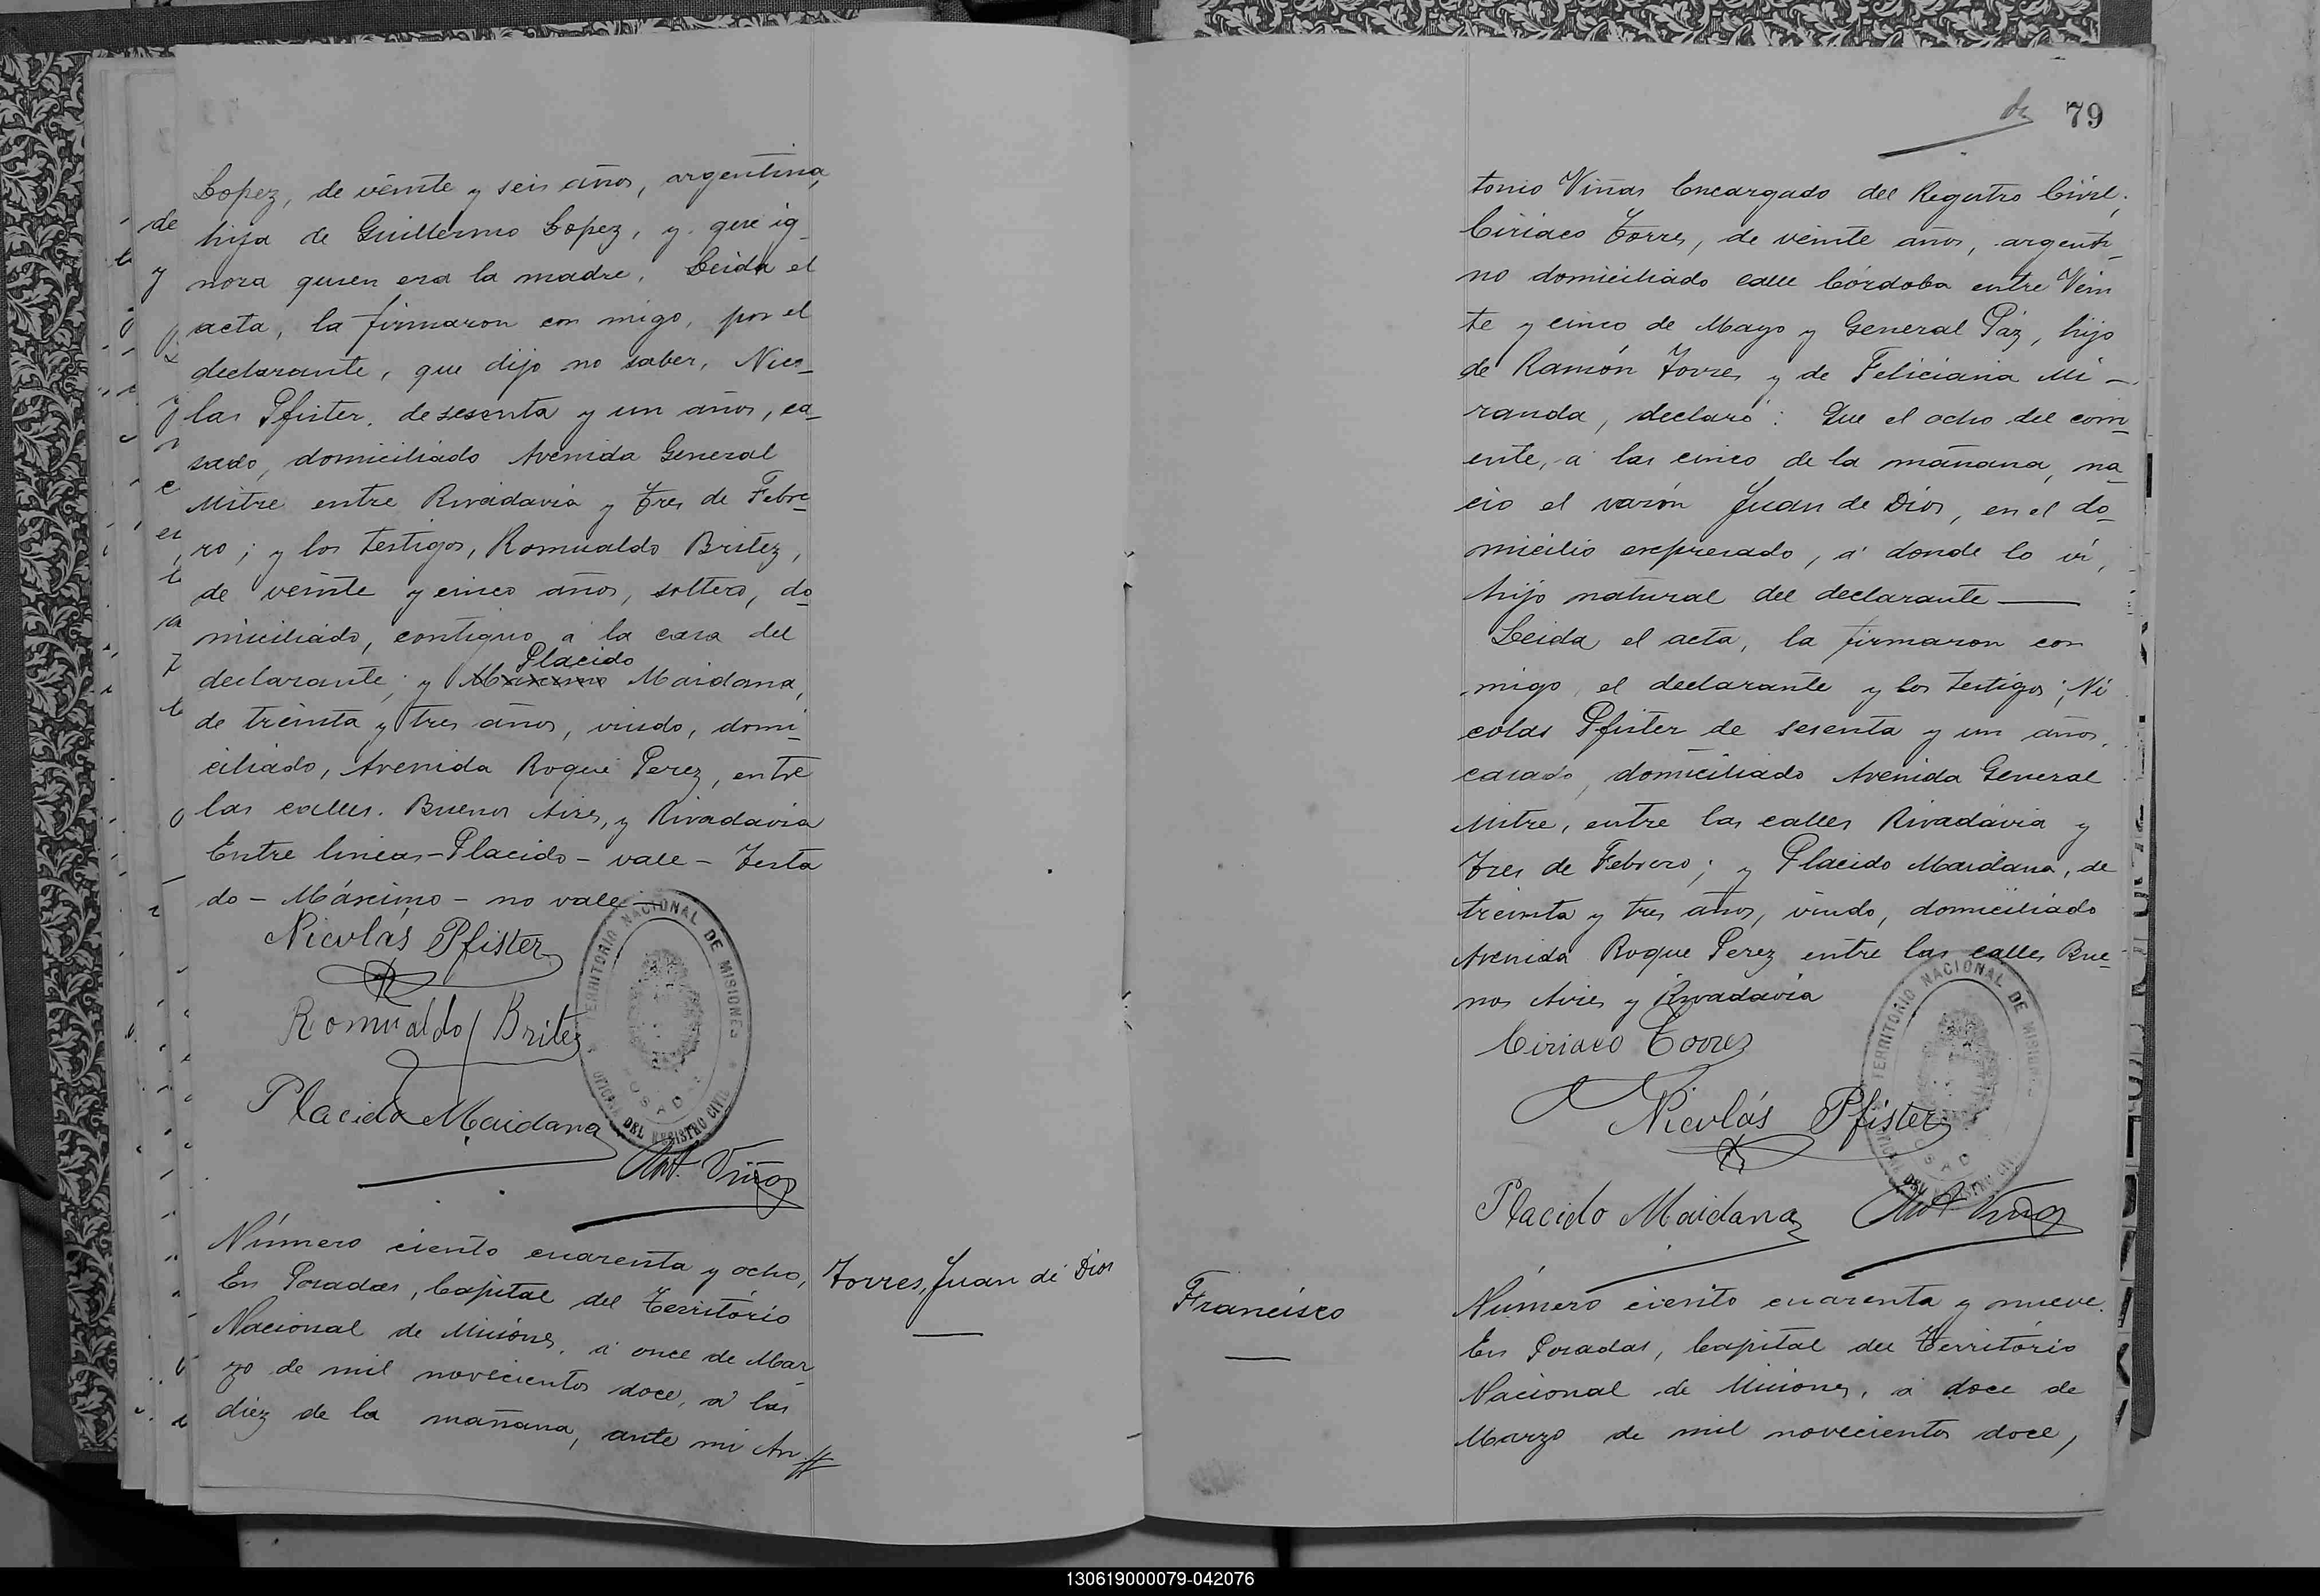 Lopez, de veinte y seis años, argentina,
hija de Guillermo Lopez, y que ig_
nora quien era la madre. Leida el
acta, la firmaron con migo, por el
declarante, que dijo no saber, Nico_
las Pfister, de sesenta y un años, ca_
sado, domiciliado Avenida General
Mitre entre Rivadavia y Tres de Febre_
ro; y los testigos, Romualdo Britez,
de veinte y cinco años, soltero, do_
miciliado, contiguo á la casa del
Placido
declarante; y Máximo Maidana,
de treinta y tres años, viudo, domi_
ciliado, Avenida Roque Perez, entre
las calles. Buenos Aires, y Rivadavia
Entre lineas - Placido - vale - Testa
do - Máximo - no vale -
Nicolás Pfister
Romualdo Britez
Placido Maidana
Ant. Viñas
TERRITORIO NACIONAL DE MISIONES
OFICINA DEL REGISTRO CIVIL
Número ciento cuarenta y ocho,
En Posadas, Capital del Território
Nacional de Misiones, á once de Mar_
zo de mil novecientos doce, á las
diez de la mañana, ante mi An
Torres, Juan de Dios
79
tonio Viñas Encargado del Registro Civil,
Ciriaco Torres, de veinte años, argenti_
no domiciliado calle Córdoba entre Vein
te y cinco de Mayo y General Páz, hijo
de Ramón Torres y de Feliciana Mi_
randa, declaró: Que el ocho del corri_
ente, á las cinco de la mañana, na_
cio el varón Juan de Dios, en el do_
micilio expresado, á donde lo vi,
hijo natural del declarante —
Leida el acta, la firmaron con
migo, el declarante y los testigos; Ni
colas Pfister de sesenta y un años,
casado, domiciliado Avenida General
Mitre, entre las calles Rivadávia y
Tres de Febrero; y Placido Maidana, de
treinta y tres años, viudo, domiciliado
Avenida Roque Perez entre las calles Bue_
nos Aires y Rivadavia
Ciriaco Torres
Nicolás Pfister
Placido Maidana
Ant. Viñas
TERRITORIO NACIONAL DE MISIONES
OFICINA DEL REGISTRO CIVIL
Francisco
Número ciento cuarenta y nueve.
En Posadas, Capital del Território
Nacional de Misiones, á doce de
Marzo de mil novecientos doce,
130619000079-042076